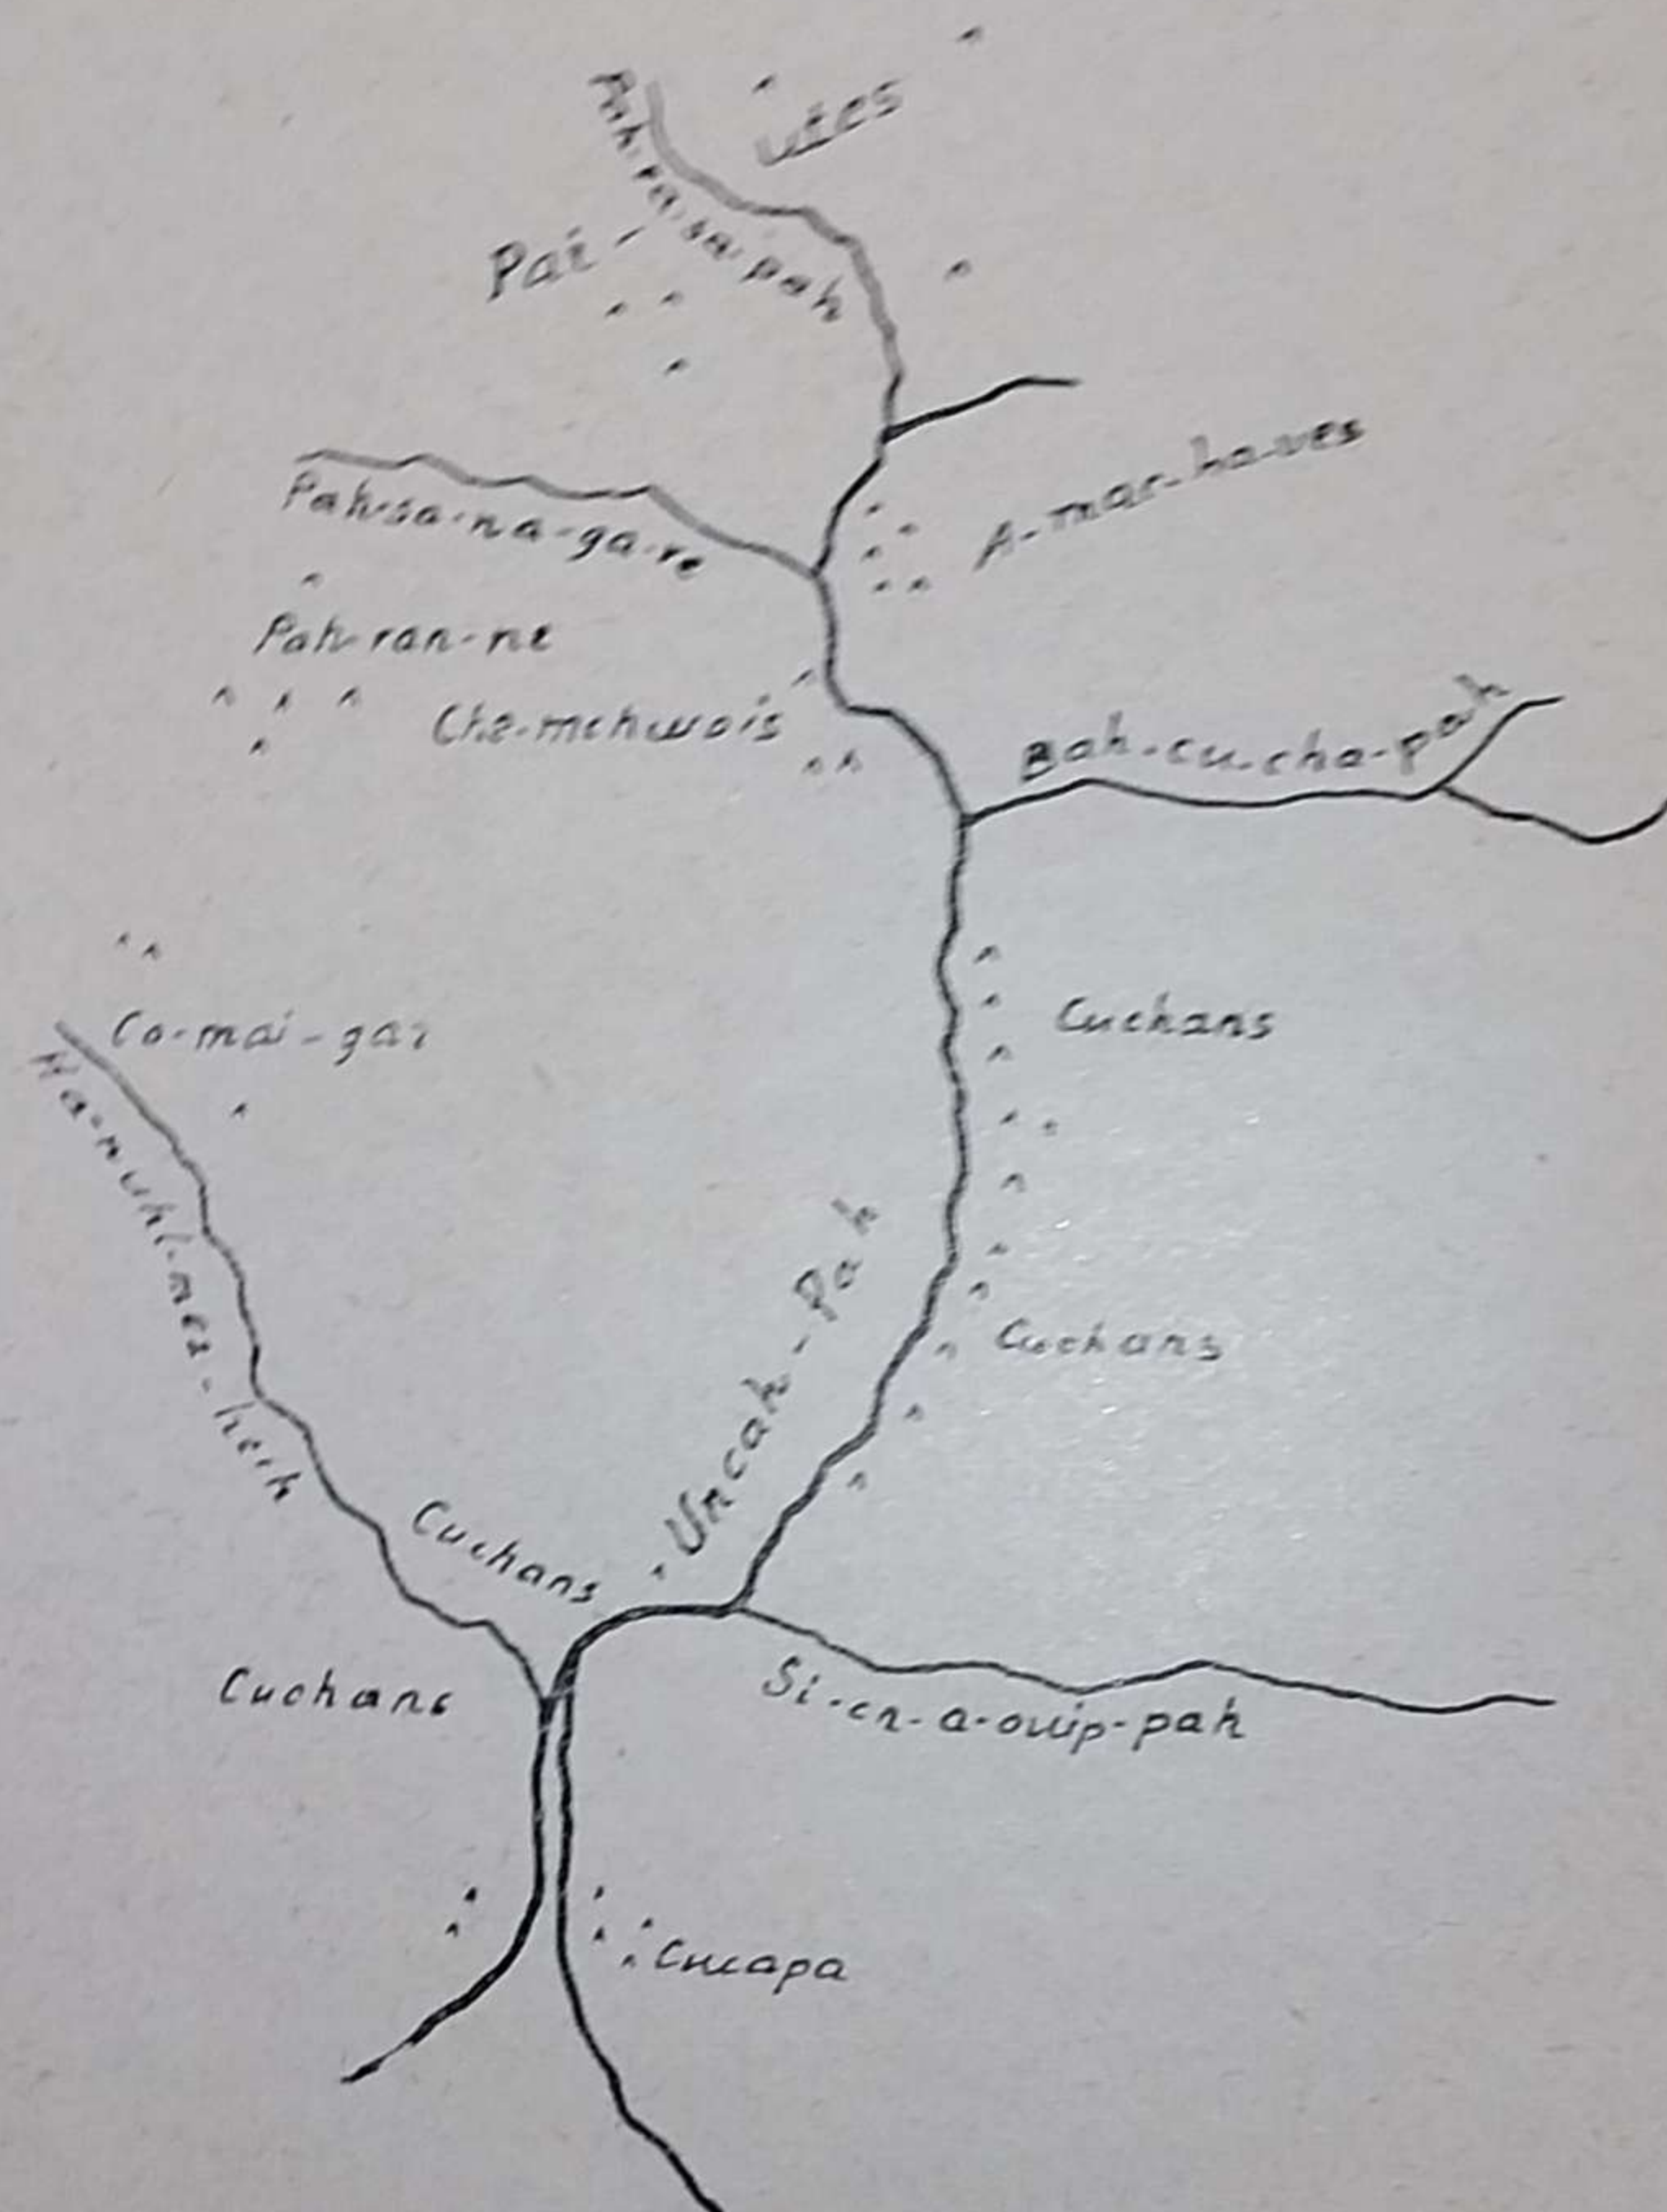 Utes
Pah-ra-sa-pah
Pai-
A-mar-ha-ves
Pah-sa-na-ga-re
Pah-ran-ne
Che-mehuvais
Bah-cu-cha-pah
Co-mai-gai
Cuchans
Uncah-Pah
Cuchans
Cuchans
Cuchans
Si-cn-a-owip-pah
Cucapa